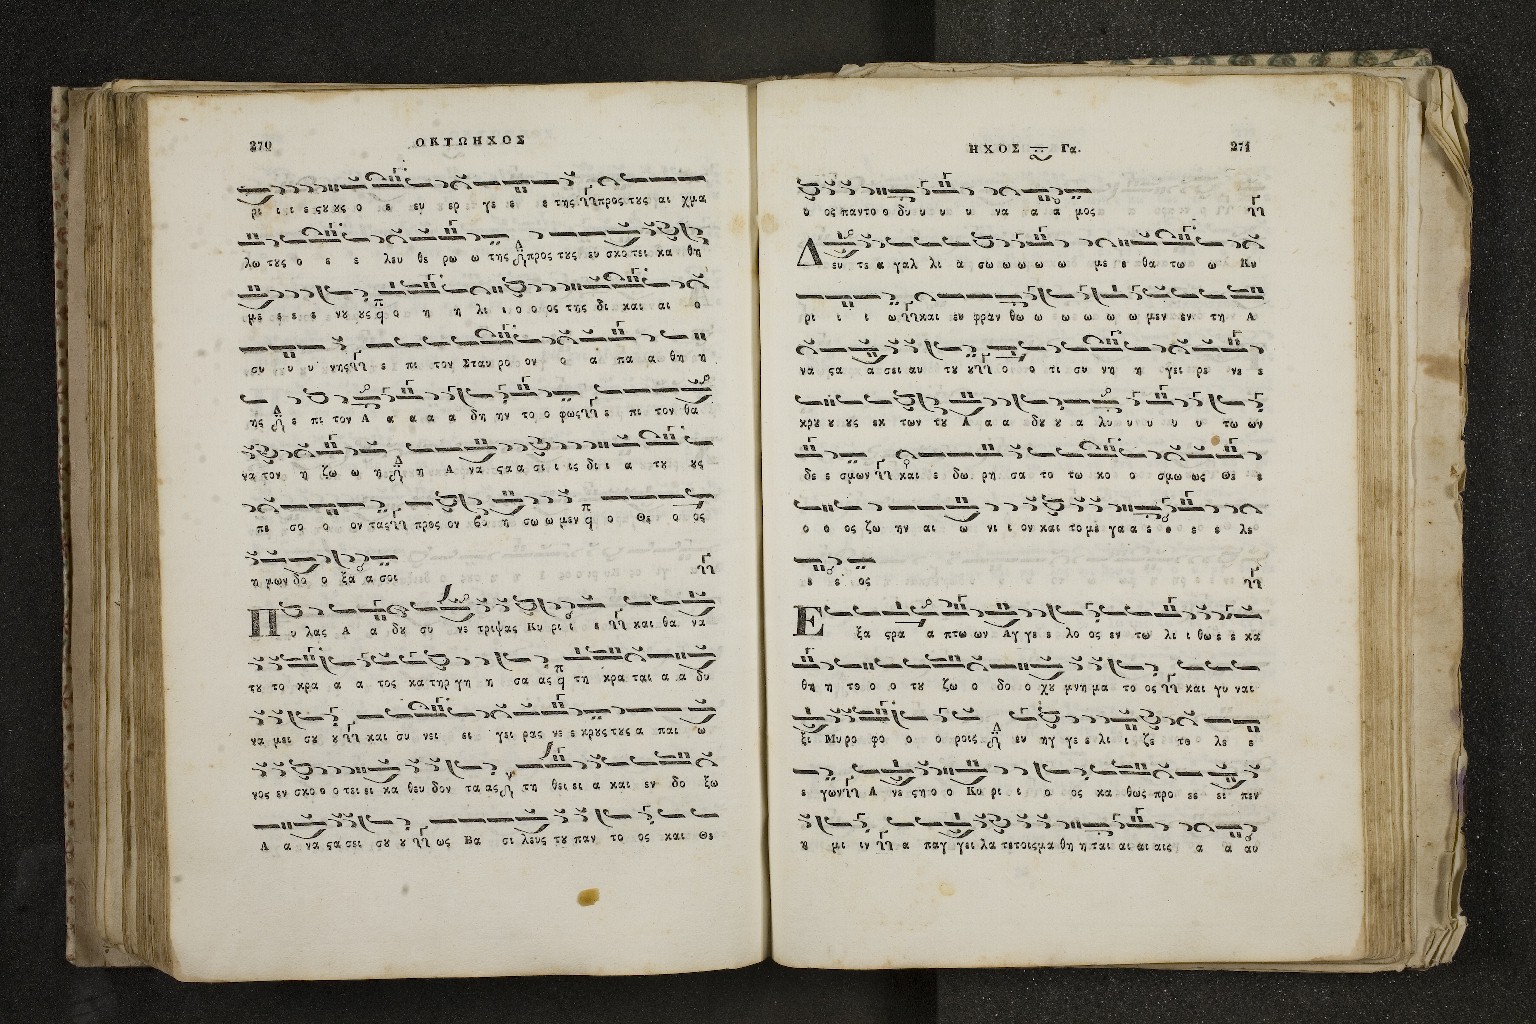 270 ΟΚΤΩΗΧΟΣ
ρι ι ι ε ςȣ ȣς ο ε ευ ερ γε ε ε της προς τȣς αι χμα
λω τȣς ο ε ε λευ θε ρω ω της προς τȣς εν σκο τει κα θη
με ε ε ε νȣ ȣς ο η η λι ι ο ο ος της δι και αι ο
συ υ υ νης ε πι τον Σταυ ρο ον ο α πα α θη η
ης ε πι τον Α α α α α δη ην το ο φως ε πι τον θα
να τον η ζω ω η η Α να ςα α σι ι ις δι ι α τȣ ȣς
πε σο ο ον τας προς ον βο η σω ω μεν ο Θε ο ος
η μων δο ο ξα α σοι
Πυ λας Α α δȣ συ νε τριψας Κυ ρι ι ε και θα να
τȣ το κρα α α τος κα τηρ γη η σα ας τη κρα ται α α δυ
να μει σȣ ȣ και συ νει ει γει ρας νε ε κρȣς τȣς α παι ω
νος εν σκο ο ο τει ει κα θευ δον τα ας τη θει ει α και εν δο ξω
Α α να ςα σει σȣ ȣ ως Βα σι λευς τȣ παν το ος και Θε
ΗΧΟΣ Γα. 271
ο ος παντο ο δυ υ υ υ να α α μος
Δευ τε α γαλ λι α σω ω ω ω ω με ε θα τω ω Κυ
ρι ι ι ω και ευ φραν θω ω ω ω ω ω μεν εν τη Α
να ςα α σει αυ τȣ ȣ ο ο τι συ νη η γει ρε νε ε
κρȣ ȣ ȣς εκ των τȣ Α α α δȣ ȣ α λυ υ υ υ υ τω ων
δε ε σμων και ε δω ρη σα το τω κο ο σμω ως Θε ε
ο ο ος ζω ην αι ω νι ι ον και το με γα α ε ε ε ε λε
ε ε ος
Εξα ςρα α πτω ων Αγ γε ε λο ος εν τω λι ι θω ε ε κα
θη η το ο ο τȣ ζω ο δο ο χȣ μνη μα το ος και γυ ναι
ξι Μυρο φο ο ο ροις ευ ηγ γε ε λι ι ζε το λε ε
ε γων Α νε ςη ο ο Κυ ρι ι ο ος κα θως προ εε ει πεν
υ μι ιν α παγ γει λα τε τοις μα θη η ται αι αι αι αις α α αυ